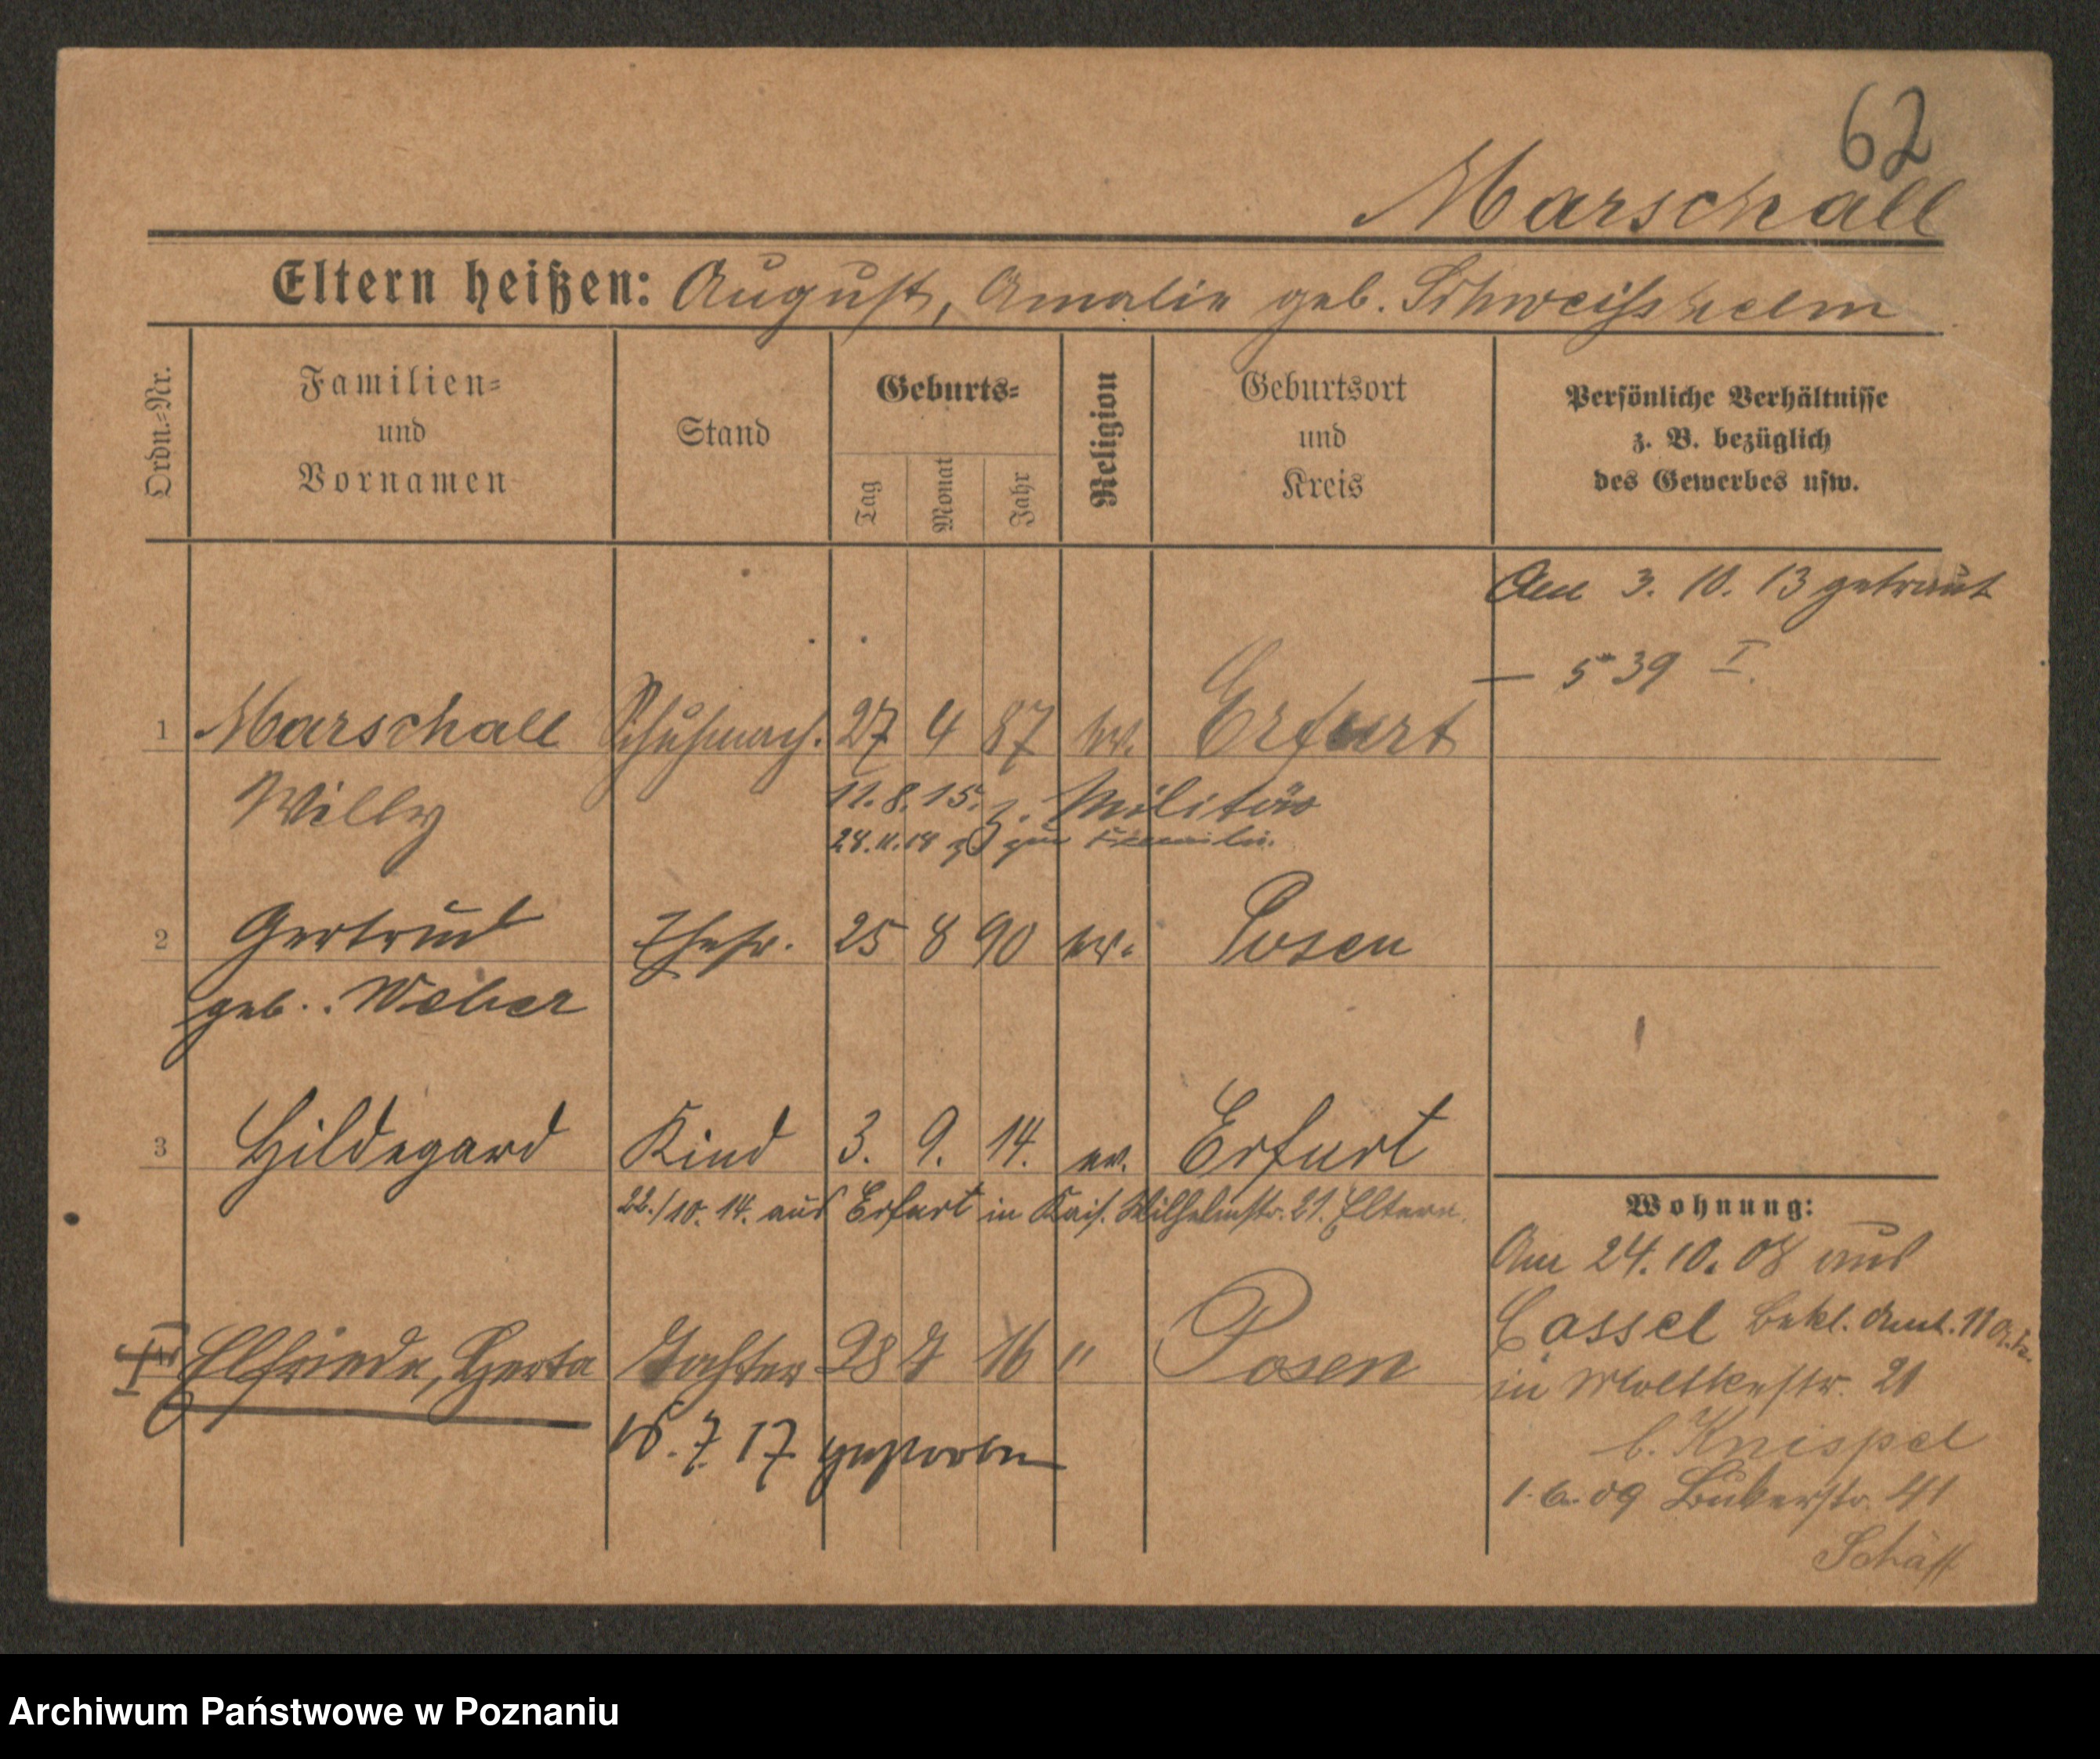 62
Marschall
Eltern heißen: August, Amalie geb. Schweisshelm
Ordn.=Nr.
Familien=
und
Vornamen
Stand
Geburts=
Tag
Monat
Jahr
Religion
Geburtsort
und
Kreis
Persönliche Verhältnisse
z. B. bezüglich
des Gewerbes usw.
Am 3. 10. 13 getraut
— 539 I.
1 Marschall Schuhmach. 27 4 87 ev. Erfurt
Willy
11.8.15. z. Militär
28.11.18 zur Familie.
2 Gertrud Ehefr. 25 8 90 ev. Posen
geb. Weber
3 Hildegard Kind 3. 9. 14. ev. Erfurt
22./10. 14. aus Erfurt in Kais. Wilhelmstr. 21. Eltern.
Elfriede, Herta Tochter 28 7 16 " Posen
16. 7. 17 gestorben
Wohnung:
Am 24. 10. 08 aus
Cassel Bekl. Amt.
in Moltkestr. 21
b. Knispel
1. 6. 09 Bukerstr. 41
Schäff
Archiwum Państwowe w Poznaniu